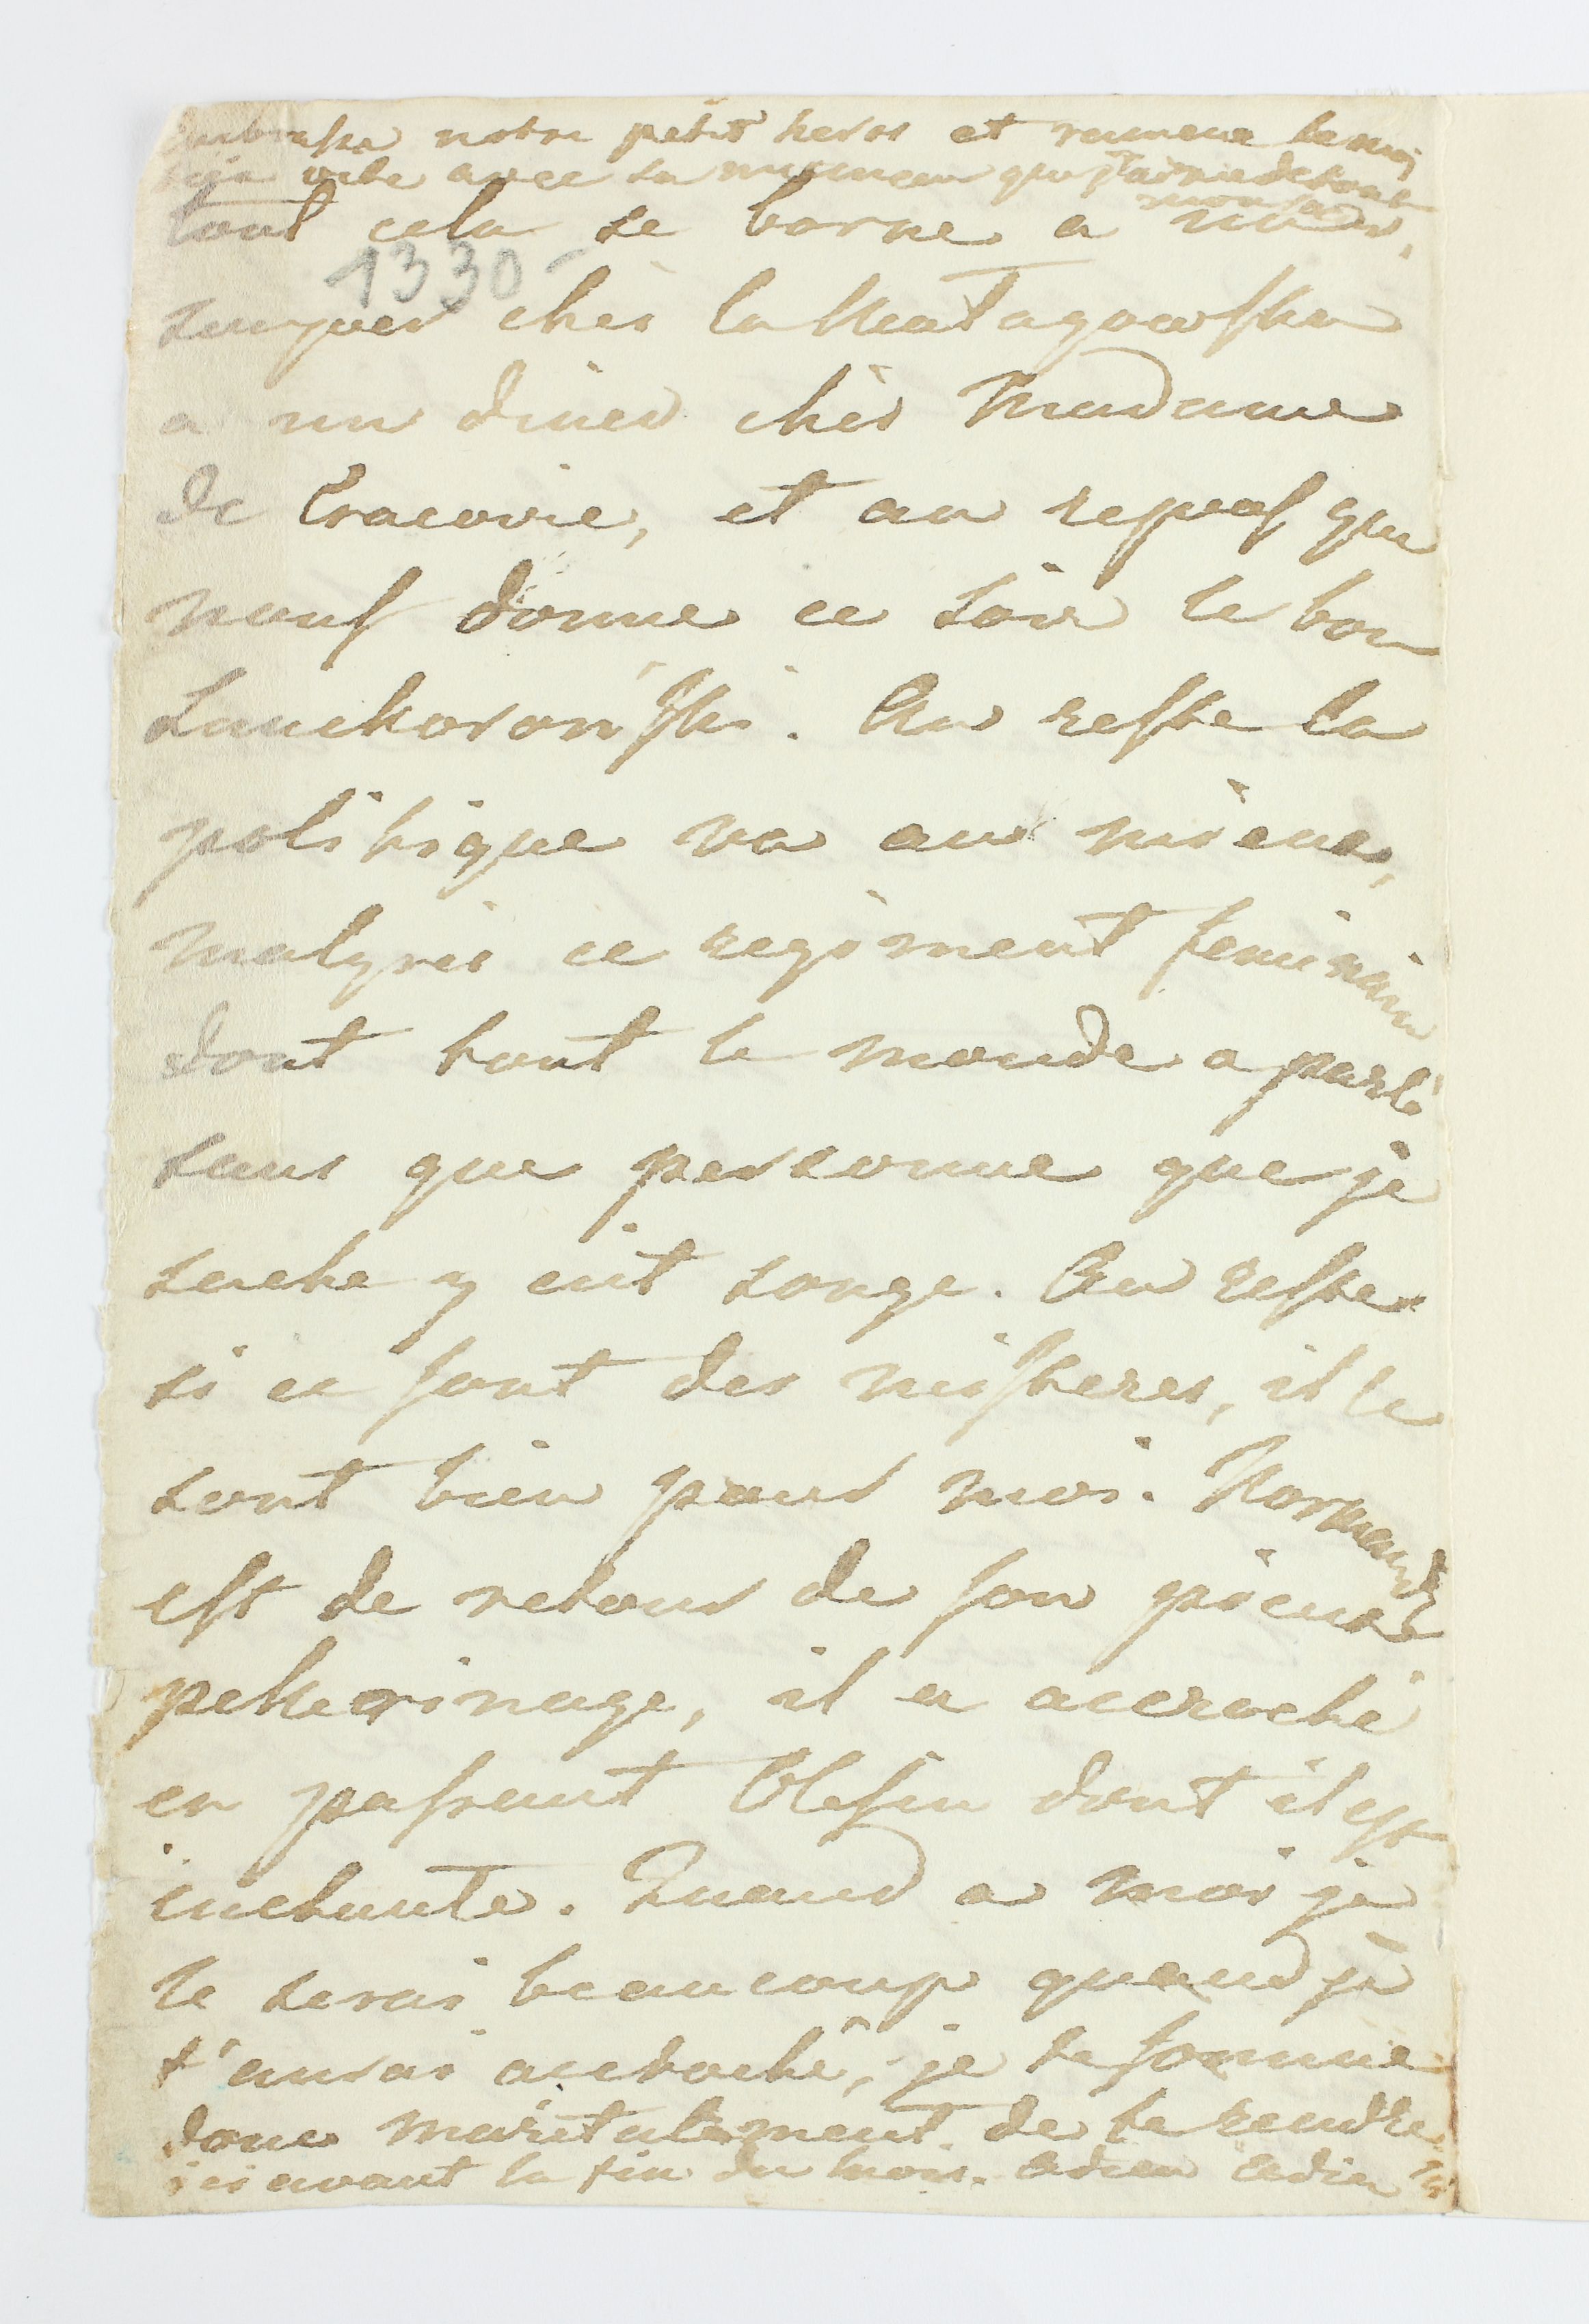 embrasse notre petit heros et ramene le moi
vite avec sa maman que j'aime de tout
mon
tout cela se borne a un
1330
souper chés la Matagowska
a un diner chés Madame
de Cracovie, et au repas que
nous donne ce soir le bon
Lanckoroński. Au reste la
politique va au mieux,
malgrés ce regiment feminin
dont tout le monde a parlé
sans que personne que je
sache y eut songe. Au reste
si ce sont des misteres, il le
sont bien pour moi. Normand
est de retour de son pieux
pellerinage, il a accroché
en passant Olesin dont il est
enchanté. Quand a moi je
le serai beaucoup quand je
t'aurai accroché, je te somme
donc maritalement de te rendre
ici avant la fin du mois. Adieu Adieu